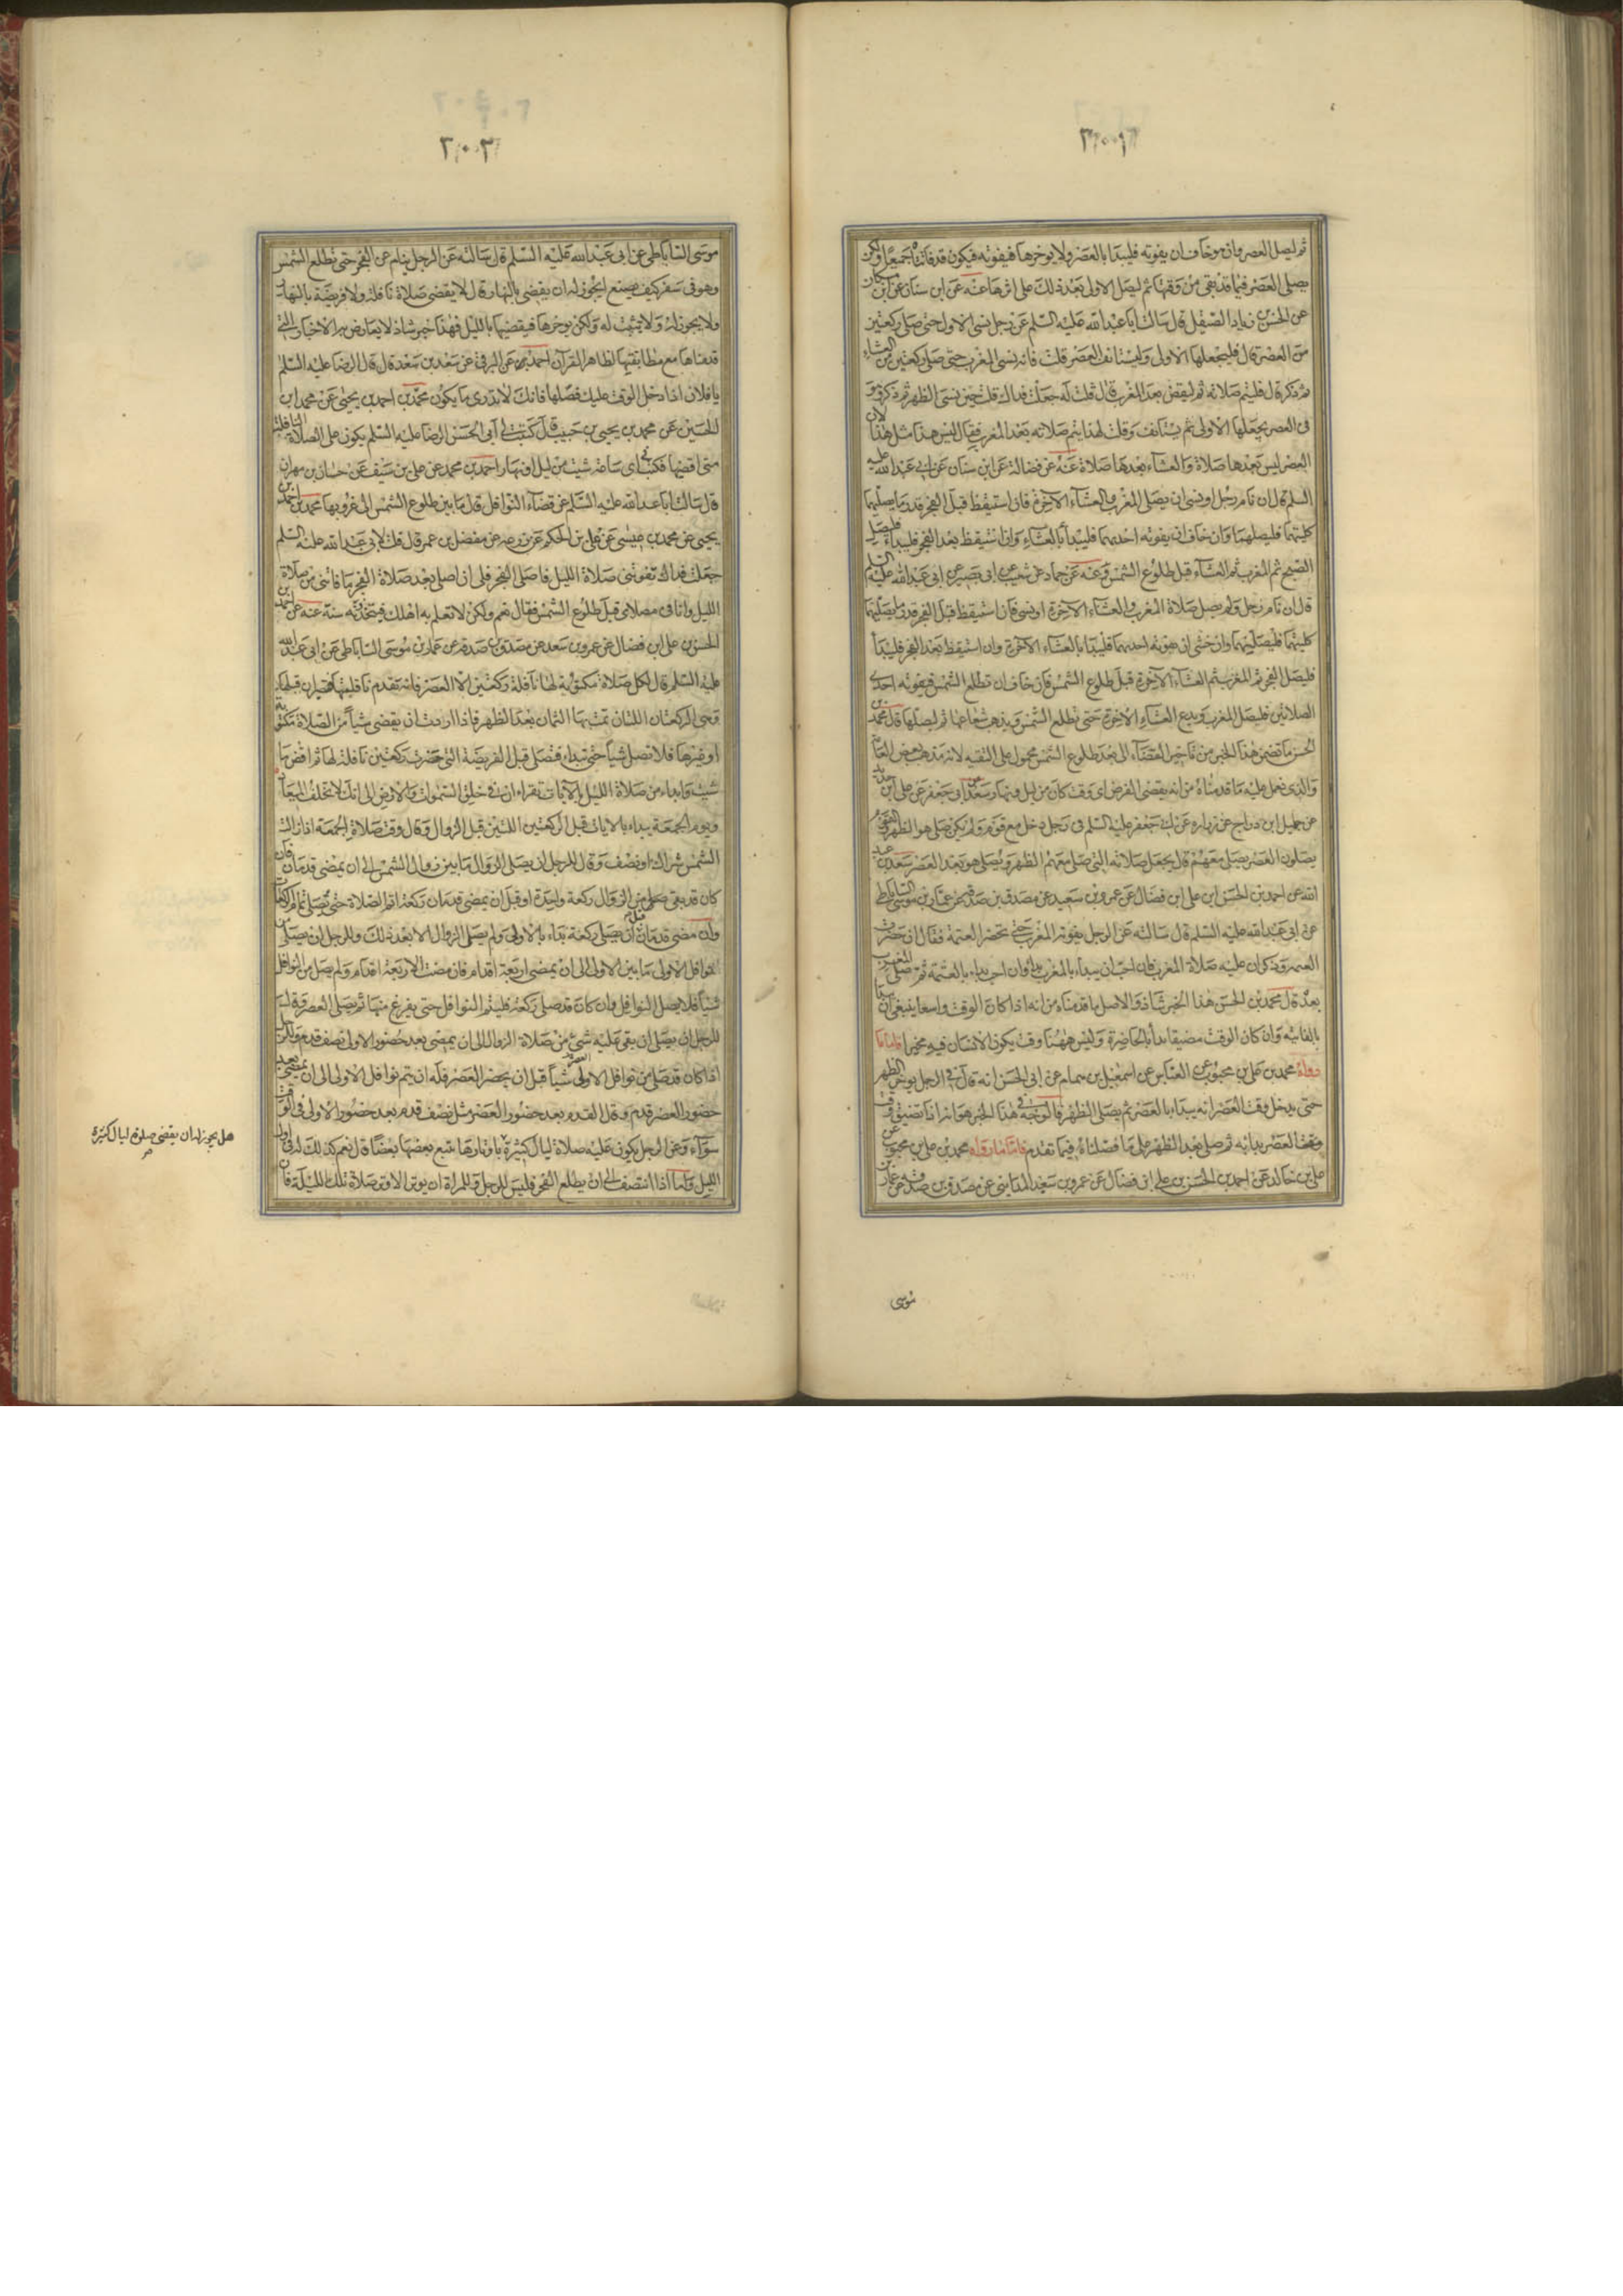 ثم ليصل العصر وان هو خاف ان يفوته فليبدا بالعصر ولا يوخرها فيفوته فيكون قد فاتتاه جميعا ولكن
يصلي العصر فيما قد بقي من وقتها ثم ليصل الاولى بعد ذلك على اثرها عنه عن ابن سنان عن ابن مسكان
عن الحسن بن زياد الصيقل قال سالت ابا عبد الله عليه السلم عن رجل نسي الاولى حتى صلى ركعتين
من العصر قال فليجعلها الاولى وليستانف العصر قلت فانه نسي المغرب حتى صلى ركعتين من العشاء
ثم ذكر قال فليتم صلاته ثم ليقض بعد المغرب قال قلت له جعلت فداك قلت حين نسى الظهر ثم ذكر وهو
في العصر يجعلها الاولى ثم يستانف وقلت لهذا يتم صلاته بعد المغرب فقال ليس هذا مثل هذا لان
العصر ليس بعدها صلاة والعشاء بعدها صلاة عنه عن فضالة عن ابن سنان عن ابي عبد الله عليه
السلم قال ان نام رجل او نسي ان يصلي المغرب والعشاء الاخرة فان استيقظ قبل الفجر قدر ما يصليهما
كلتيهما فليصلهما وان خاف ان يفوته احديهما فليبدأ بالعشاء وان استيقظ بعد الفجر فليبداء فليصل
الصبح ثم المغرب ثم العشاء قبل طلوع الشمس وعنه عن حماد عن شعيب عن ابي بصير عن ابي عبد الله عليه السلم
قال ان نام رجل ولم يصل صلاة المغرب والعشاء الاخرة او نسي فان استيقظ قبل الفجر قدر ما يصليهما
كلتيهما فليصليهما وان خشي ان يفوته احديهما فليبدأ بالعشاء الاخرة وان استيقظ بعد الفجر فليبدأ
فليصل الفجر ثم المغرب ثم العشاء الاخرة قبل طلوع الشمس فان خاف ان تطلع الشمس فيفوته احدى
الصلاتين فليصل المغرب ويدع العشاء الاخرة حتى تطلع الشمس ويذهب شعاعها ثم ليصلها قال محمد بن
الحسن ما تضمن هذا الخبر من تاخير القضاء الى بعد طلوع الشمس محمول على التقيه لانه مذهب بعض العامة
والذى نعمل عليه ما قدمناه من انه يقضي الفرض اى وقت كان من ليل ونهار سعد عن ابي جعفر عن علي ابن حديد
عن جميل ابن دراج عن زراره عن ابي جعفر عليه السلم في رجل دخل مع قوم ولم يكن صلى هو الظهر والقوم
يصلون العصر يصلي معهم قال يجعل صلاته التي صلى معهم الظهر ويصلي هو بعد العصر سعد بن عبد
الله عن احمد بن الحسن ابن علي ابن فضال عن عمرو بن سعيد عن مصدق بن صدقة عن عمار بن موسى الساباطى
عن ابي عبد الله عليه السلم قال سالته عن الرجل يفوته المغرب حتى تحضر العتمة فقال ان حضرت
العتمة وذكر ان عليه صلاة المغرب فان احب ان يبداء بالمغرب بدأ وان احب بداء بالعتمة ثم صلى المغرب
بعد قال محمد بن الحسن هذا الخبر شاذ والاصل ما قدمناه من انه اذا كان الوقت واسعا ينبغي ان يبدأ
بالفايته وان كان الوقت مضيقا بدأ بالحاضرة وليس ههنا وقت يكون الانسان فيه مخيرا فاما ما
رواه محمد بن علي بن محبوب عن العباس عن اسمعيل بن همام عن ابي الحسن انه قال في الرجل يوخر الظهر
حتى يدخل وقت العصر انه يبدا بالعصر ثم يصلي الظهر فالوجه في هذا الخبر هو انه اذا تضيق وقت
وقت العصر بدا به ثم صلى بعد الظهر على ما فصلناه فيما تقدم فاما ما رواه محمد بن علي بن محبوب عن
علي بن خالد عن احمد بن الحسن بن علي ابن فضال عن عمرو بن سعيد المدايني عن مصدق بن صدقة عن عمار بن
موسى
موسى الساباطي عن ابي عبد الله عليه السلم قال سالته عن الرجل ينام عن الفجر حتى تطلع الشمس
وهو في سفر كيف يصنع ايجوز له ان يقضي بالنهار قال لا يقضي صلاة نافلة ولا فريضة بالنهار
ولا يجوز له ولا يثبت له ولكن يوخرها فيقضيها بالليل فهذا خبر شاذ لا يعارض به الاخبار التي
قدمناها مع مطابقتها لظاهر القرآن احمد بن عن البرقي عن سعد بن سعد قال قال الرضا عليه السلم
يا فلان اذا دخل الوقت عليك فصلها فانك لا تدرى ما يكون محمد بن احمد بن يحيى عن محمد ابن
الحسين عن محمد بن يحيى بن حبيب قال كتبت الى ابي الحسن الرضا عليه السلم يكون علي الصلاة النافلة
متى اقضيها فكتب اى ساعة شيت من ليل او نهار احمد بن محمد عن علي بن سيف عن حسان بن مهران
قال سالت ابا عبد الله عليه السلم عن قضاء النوافل قال ما بين طلوع الشمس الى غروبها محمد بن احمد بن
يحيى عن محمد بن عيسى عن علي بن الحكم عن زرعه عن مفضل بن عمر قال قلت لابي عبد الله عليه السلم
جعلت فداك تفوتني صلاة الليل فاصلي الفجر فلي ان اصلي بعد صلاة الفجر ما فاتني من صلاة
الليل وانا في مصلاي قبل طلوع الشمس فقال نعم ولكن لا تعلم به اهلك فيتخذونه سنة عنه عن احمد بن
الحسن بن علي ابن فضال عن عمرو بن سعد عن مصدق بن صدقه عن عمار بن موسى الساباطي عن ابي عبد الله
عليه السلم قال لكل صلاة مكتوبة لها نافلة ركعتين الا العصر فانه تقدم نافلتها فتصيران قبلها
وهي الركعتان اللتان تمت بهما الثمان بعد الظهر فاذا اردت ان يقضي شيأ من الصلاة مكتوبة
او غيرها فلا تصل شيأ حتى تبداء فتصلي قبل الفريضة التي حضرت ركعتين نافلة لها ثم اقض ما
شيت وابداء من صلاة الليل بالآيات تقراء ان في خلق السموات والارض الى انك لا تخلف الميعاد
ويوم الجمعة يبداء بالايات قبل الركعتين اللتين قبل الزوال وقال وقت صلاة الجمعة اذا زالت
الشمس شراك او نصف وقال للرجل ان يصلي الزوال ما بين زوال الشمس الى ان يمضي قدمان فان
كان قد بقي من الزوال ركعة واحدة او قبل ان يمضي قدمان ركعة اتم الصلاة حتى يصلي تمام الركعات
وان مضى قدمان قبل ان يصلي ركعة بداء بالاولى ولم يصلى الزوال الا بعد ذلك وللرجل ان يصلي من
نوافل الاولى ما بين الاولى الى ان يمضي اربعة اقدام فان مضت الاربعة اقدام ولم يصل من النوافل
شيأ فلا يصل النوافل وان كان قد صلى ركعة فليتم النوافل حتى يفرغ منها ثم يصلي العصر وقال
للرجل ان يصلي ان بقي عليه شئ من صلاة الزوال الى ان يمضي بعد حضور الاولى نصف قدم وللرجل
اذا كان قد صلى من نوافل الاولى شيأ قبل ان يحضر العصر فله ان يتم نوافل الاولى الى ان يمضي بعد
حضور العصر قدم وقال القدم بعد حضور العصر مثل نصف قدم بعد حضور الاولى في الوقت
سوآء وعن الرجل يكون عليه صلاة ليال كثيرة باوتارها يتبع بعضها بعضا قال نعم كذلك له في اول
الليل واما اذا انتصف الى ان يطلع الفجر فليس للرجل وللمراة ان يوتر الا وتر صلاة تلك الليلة فان
هل يجوز له ان يقضي صلوة ليال كثيرة